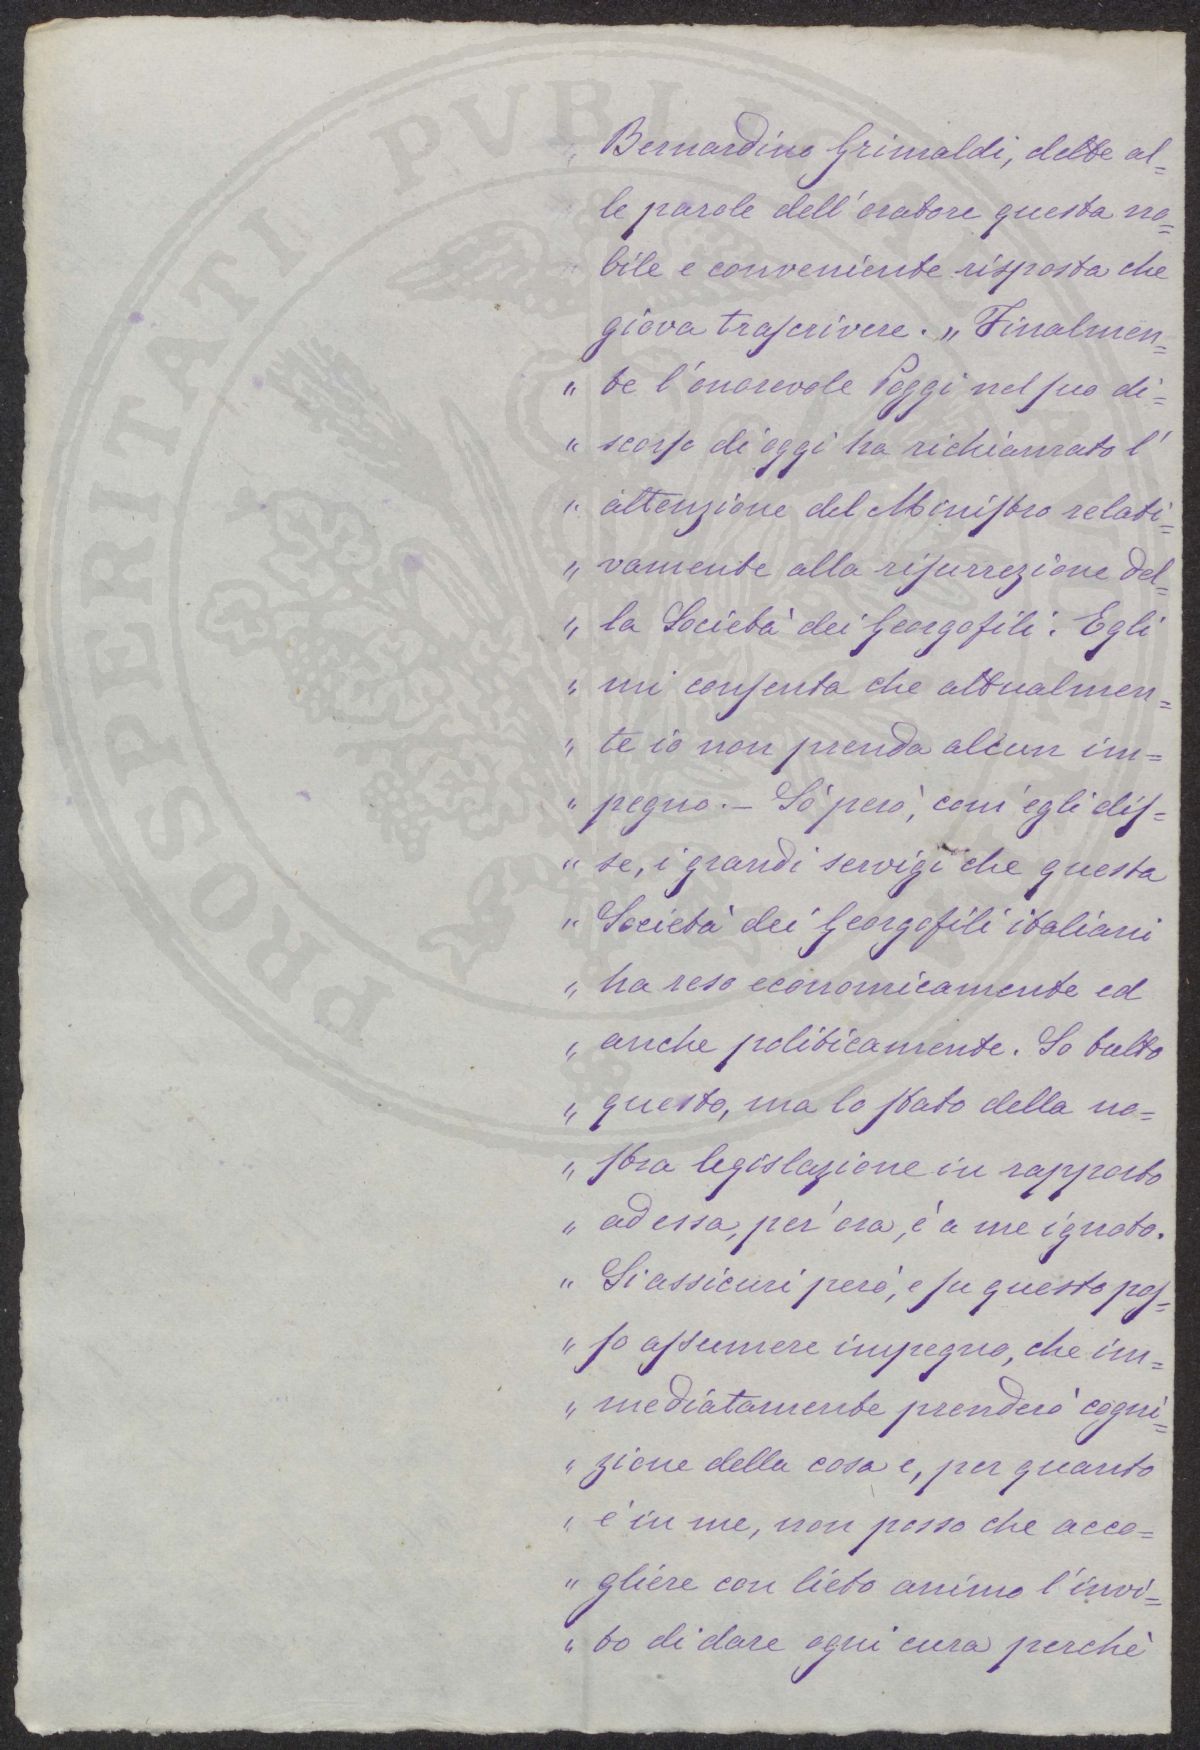 Bernardino Grimaldi, dette al=
le parole dell'oratore questa no=
bile e conveniente risposta che
giova trascrivere. „ Finalmen=
„ te l'onorevole Poggi nel suo di=
„ scorso di oggi ha richiamato l'
„ attenzione del Ministro relati=
„ vamente alla risurrezione del=
„ la Società dei Georgofili. Egli
„ mi consenta che attualmen=
„ te io non prenda alcun im=
„ pegno. — Sò però, com'egli dis=
„ se, i grandi servigi che questa
„ Società dei Georgofili italiani
„ ha reso economicamente ed
„ anche politicamente. So tutto
„ questo, ma lo stato della no=
„ stra legislazione in rapporto
„ ad essa, per ora, è a me ignoto.
„ Si assicuri però, e su questo pos=
„ so assumere impegno, che im=
„ mediatamente prenderò cogni=
„ zione della cosa e, per quanto
„ è in me, non posso che acco=
„ gliere con lieto animo l'invi=
„ to di dare ogni cura perchè
PROSPERITATI PVBLICAE